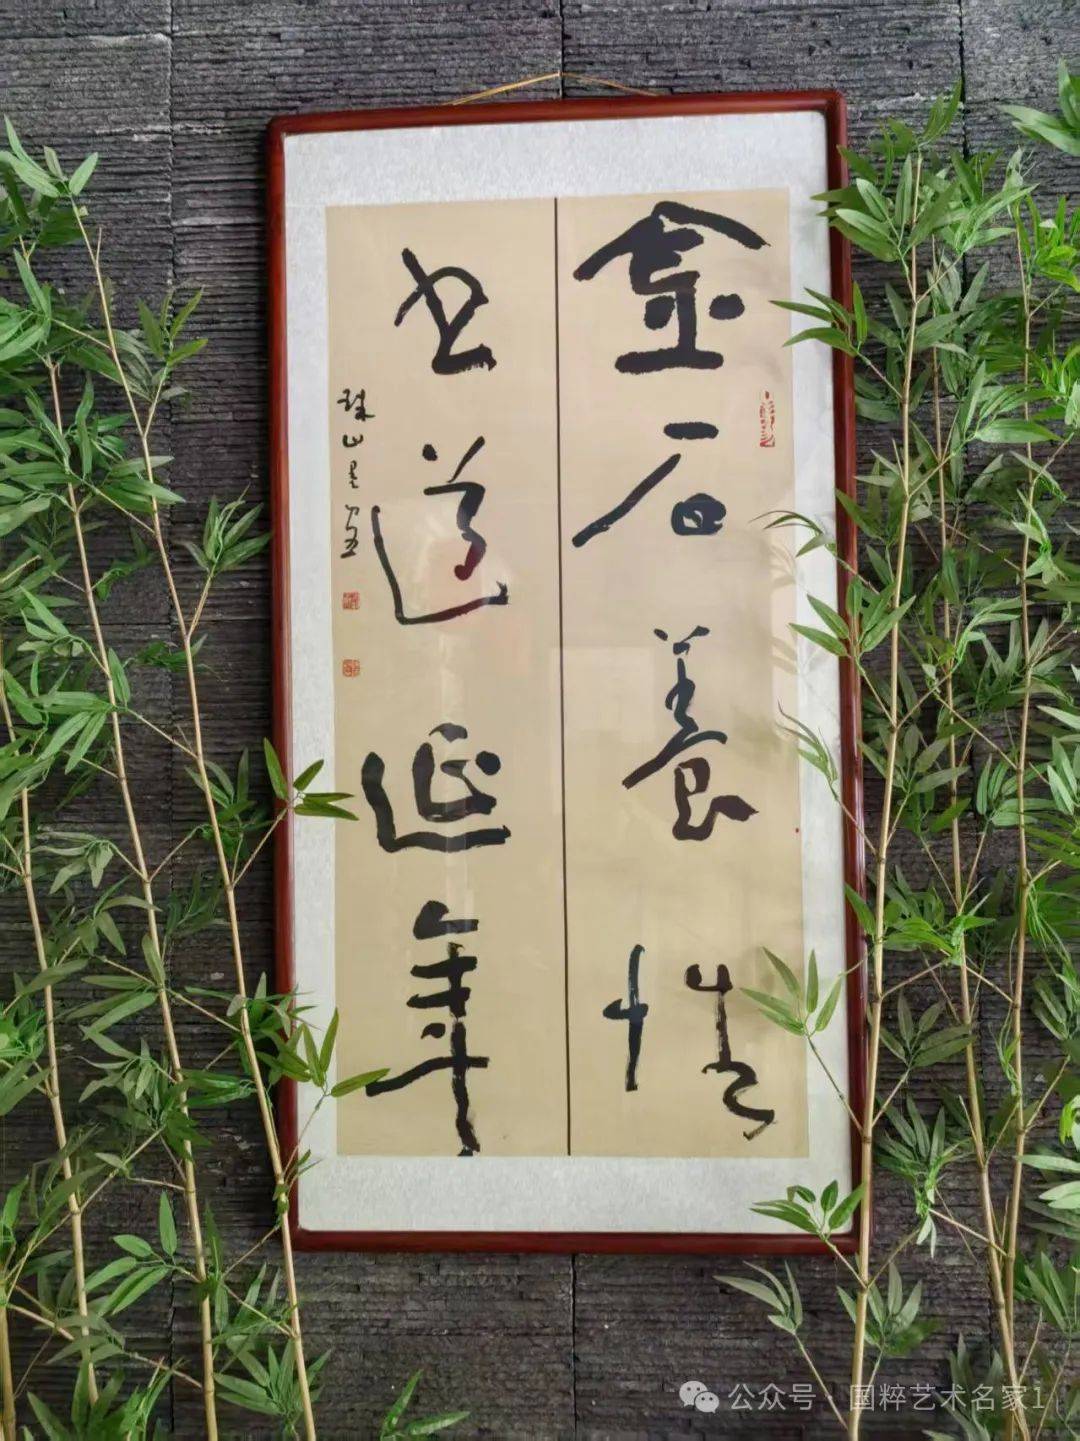 金石養性
書道延年
珠山
公众号 · 国粹艺术名家1